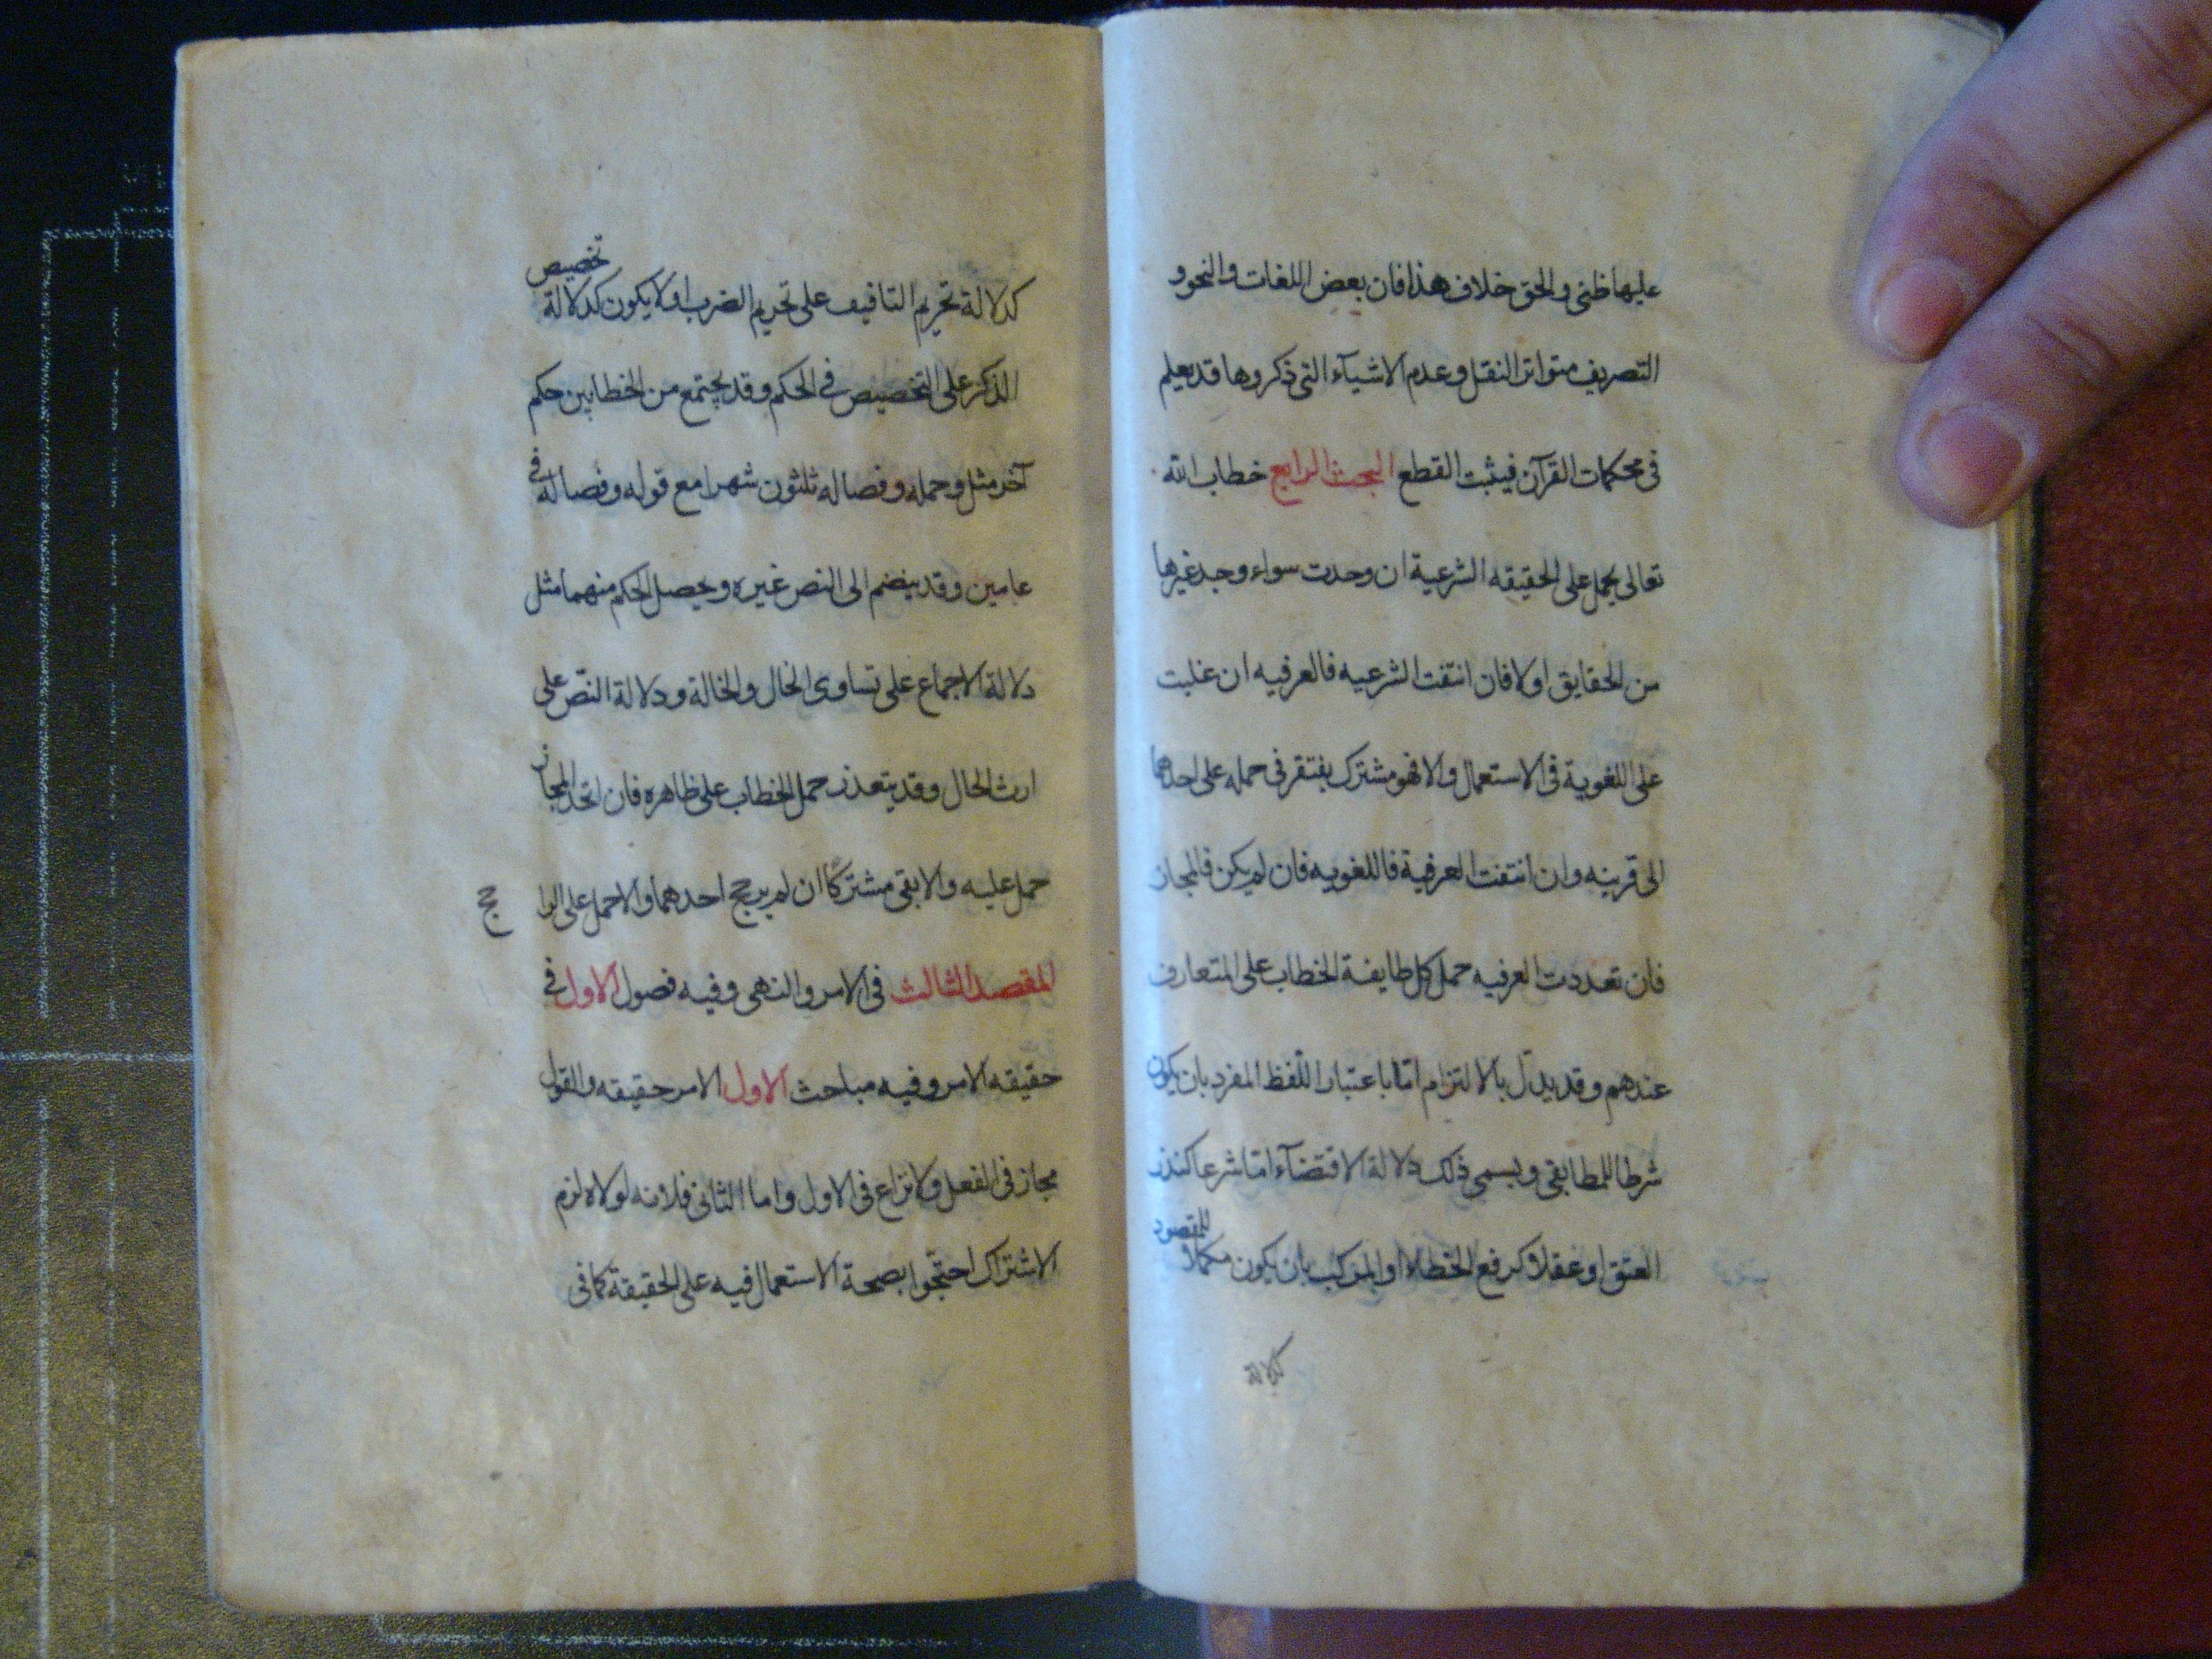 عليها ظنى والحق خلاف هذا فان بعض اللغات والنحو و
التصريف متواتر النقل وعدم الاشيآء التى ذكروها قد يعلم
فى محكمات القرآن فيثبت القطع البحث الرابع خطاب الله
تعالى يحمل على الحقيقه الشرعية ان وجدت سواء وجد غيرها
من الحقايق او لا فان انتفت الشرعيه فالعرفيه ان غلبت
على اللغوية فى الاستعمال والا فهو مشترك يفتقر فى حمله على احدهما
الى قرينه وان انتفت العرفية فاللغويه فان لم يكن فالمجاز
فان تعددت العرفيه حمل كل طايفة الخطاب على المتعارف
عندهم وقد يدلّ بالالتزام امّا باعتبار اللّفظ المفرد بان يكون
شرطا للمطابقى ويسمى ذلك دلالة الاقتضآء امّا شرعا كنذر
العتق او عقلا كرفع الخطا او المركب بان يكون مكملا للمقصود
كدلالة
كدلالة تحريم التافيف على تحريم الضرب او لا يكون كدلالة تخصيص
الذكر على التخصيص فى الحكم وقد يجتمع من الخطابين حكم
آخر مثل وحمله وفصاله ثلثون شهرا مع قوله وفصاله فى
عامين وقد ينضم الى النص غيره ويحصل الحكم منهما مثل
دلالة الاجماع على تساوى الخال والخالة ودلالة النصّ على
ارث الخال وقد يتعذر حمل الخطاب على ظاهره فان اتحد المجاز
حمل عليه والا بقى مشتركًا ان لم يرجح احدهما والا حمل على الراجح
المقصد الثالث فى الامر والنهى وفيه فصول الاول فى
حقيقه الامر وفيه مباحث الاول الامر حقيقه فى القول
مجاز فى الفعل ولا نزاع فى الاول واما الثانى فلانه لولاه لزم
الاشتراك احتجّوا بصحة الاستعمال فيه على الحقيقة كما فى